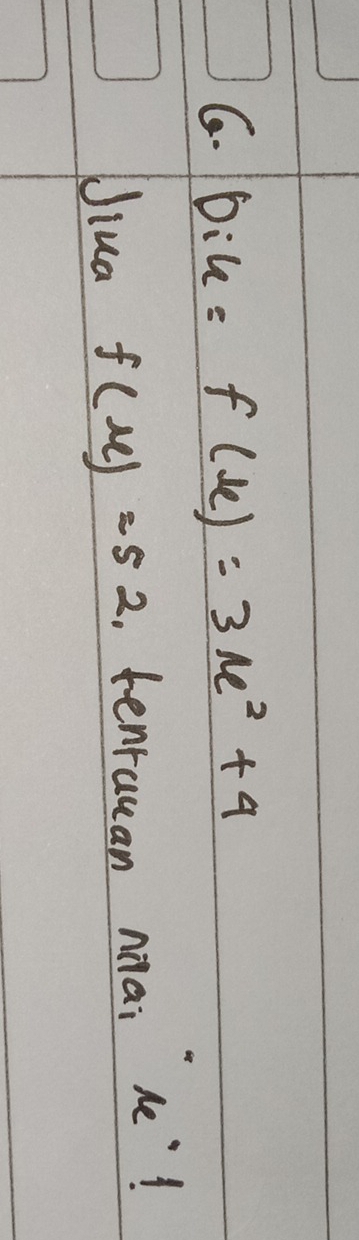 6. Dik = f(x) = 3x² + 4
Jika f(x) = 52, tentukan nilai "x"!